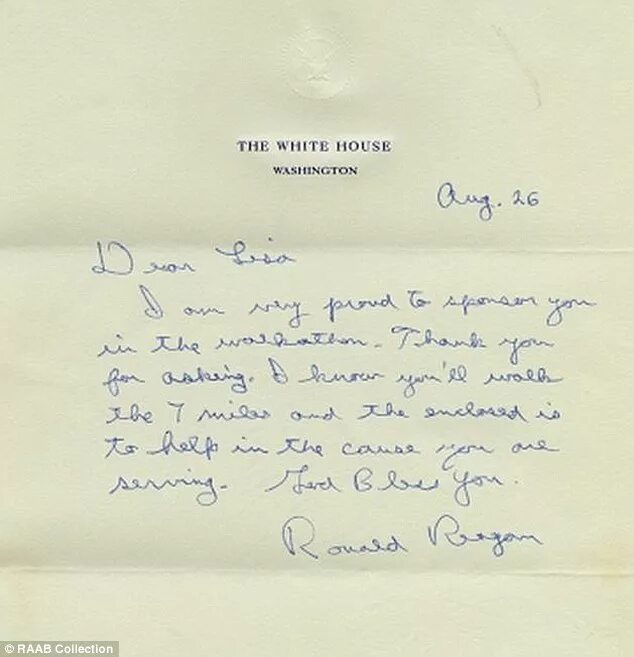 THE WHITE HOUSE
WASHINGTON
Aug. 26
Dear Lisa
I am very proud to sponsor you
in the walkathon. Thank you
for asking. I know you'll walk
the 7 miles and the enclosed is
to help in the cause you are
serving. God Bless You.
Ronald Reagan
© RAAB Collection